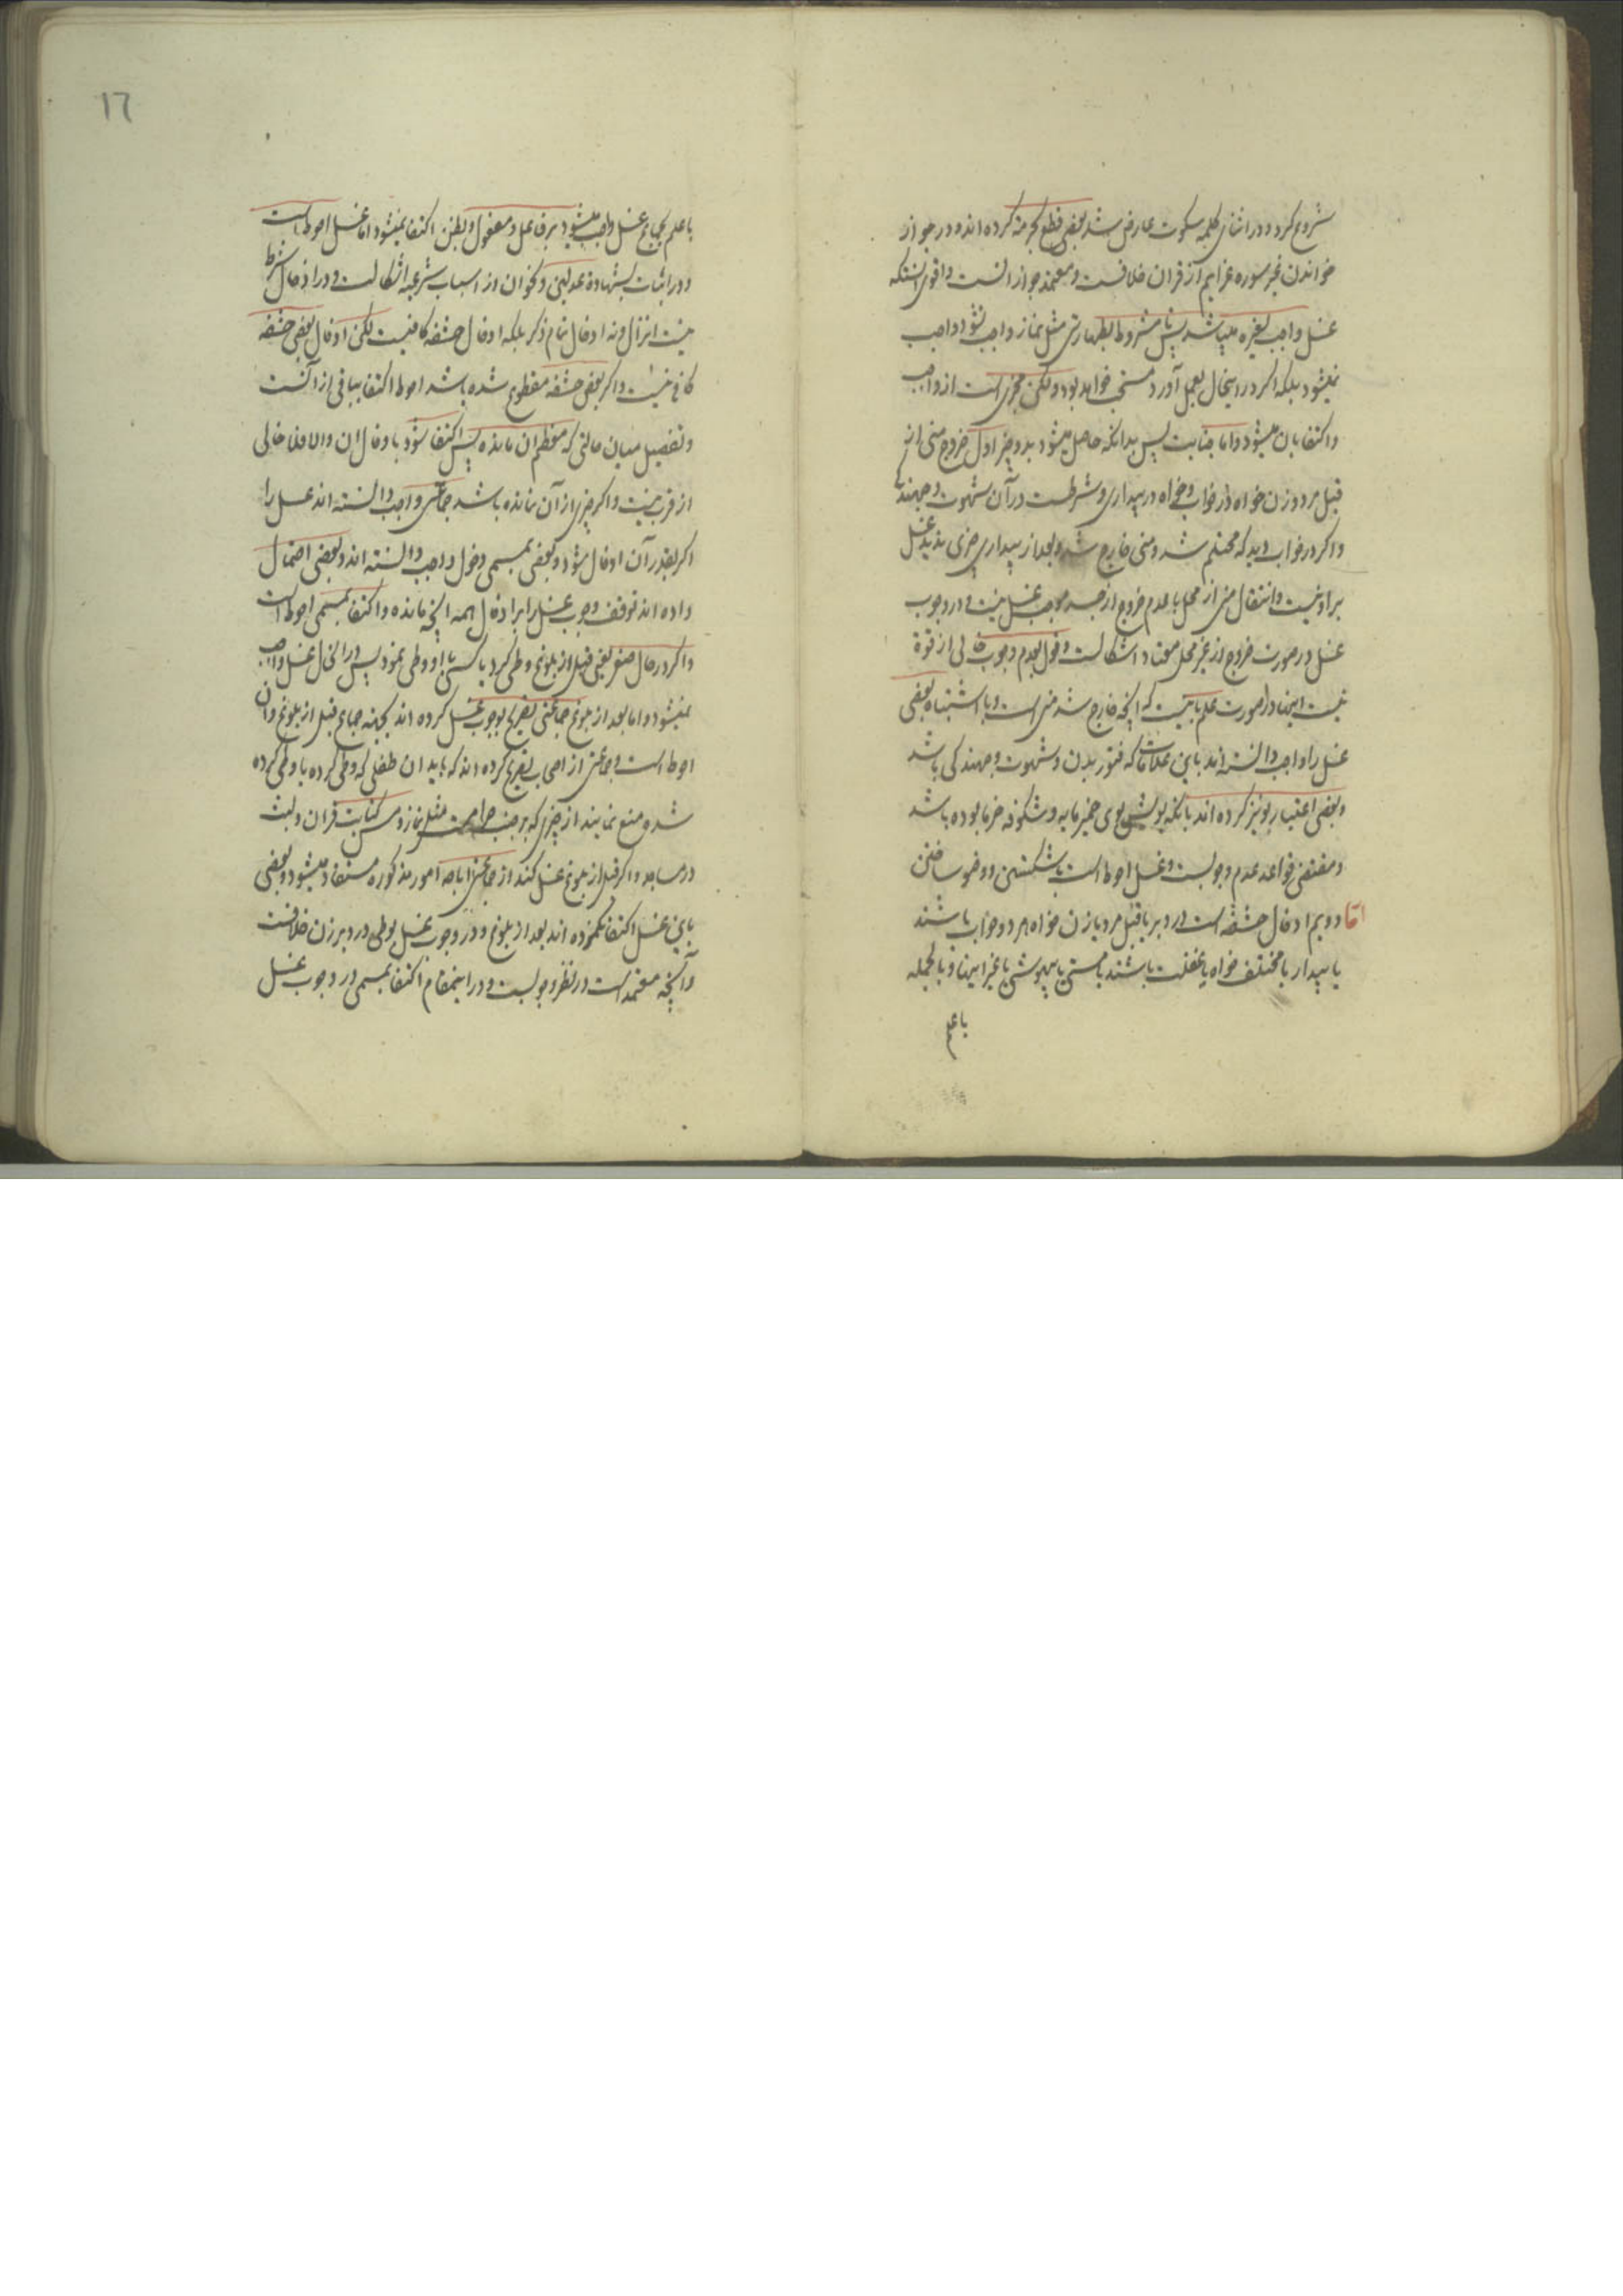 شروع کرد و در اثنای کلمه سکوت عارض شد بعضی قطع بحرمة کرده اند و در جواز
خواندن غیر سوره عزایم از قران خلافست و معتمد جواز است و اقوی انستکه
غسل واجب لغیره میباشد پس تا مشروط بطهارتی مثل نماز واجب نشود واجب
نمیشود بلکه اگر در اینحال بعمل آورد مستحب خواهد بود ولکن مجزی است از واجب
و اکتفا بان میشود و اما جنابت پس بدانکه حاصل میشود بدو چیز اول خروج منی از
قبل مرد و زن خواه در خواب و خواه در بیداری و شرطست در آن شهوت و جهندگی
و اگر در خواب دید که محتلم شد و منی خارج شد و بعد از بیداری چیزی ندید غسل
بر او نیست و انتقال منی از محل با عدم خروج از جسد موجب غسل نیست و در وجوب
غسل در صورت خروج از غیر محل معتاد اشکالست و قول بعدم وجوب خالی از قوة
نیست اینها در صورت علم باینست که آنچه خارج شد منی است و با اشتباه بعضی
غسل را واجب دانسته اند باین علامات که فتور بدن و شهوت و جهندگی باشد
و بعضی اعتبار بو نیز کرده اند بانکه بویش بوی خمیر مایه و شکوفه خرما بوده باشد
و مقتضی قواعد عدم وجوبست و غسل احوط است با شکستن و وضو ساختن
اما دویم ادخال حشفه است در دبر یا قبل مرد یا زن خواه هر دو خواب باشند
یا بیدار یا مختلف خواه با غفلت باشند یا مستی یا بیهوشی یا غیر اینها و بالجمله
با علم
١٦
با علم بجماع غسل واجب میشود بر فاعل و مفعول و بظن اکتفا نمیشود اما غسل احوط است
و در اثبات بشهادة عدلین و نحو ان از اسباب شرعیه اشکالست و در ادخال شرط
نیست انزال و نه ادخال تمام ذکر بلکه ادخال حشفه کافیست لکن ادخال بعض حشفه
کافی نیست و اگر بعض حشفه مقطوع شده باشد احوط اکتفا بباقی از آنست
و تفصیل میان حالتی که معظم ان مانده پس اکتفا شود بادخال ان والا فلا خالی
از قرب نیست و اگر چیزی از آن نمانده باشد جماعتی واجب دانسته اند غسل را
اگر بقدر آن ادخال شود و بعضی بمسمی دخول واجب دانسته اند و بعضی احتمال
داده اند توقف وجوب غسل را بر ادخال همه آنچه مانده و اکتفا بمسمی احوط است
و اگر در حال صغر یعنی قبل از بلوغ وطی کرد یا کسی با او وطی نمود پس در انحال غسل واجب
نمیشود و اما بعد از بلوغ جماعتی تصریح بوجوب غسل کرده اند بجهة جماع قبل از بلوغ و ان
احوط است و جماعتی از اصحاب تصریح کرده اند که باید ان طفلی که وطی کرده یا وطی کرده
شده منع نمایند از چیزی که بر جنب حرامست مثل نماز و مس کتابت قران و لبث
در مساجد و اگر قبل از بلوغ غسل کند از جماعتی اباحه امور مذکوره مستفاد میشود و بعضی
باین غسل اکتفا نکرده اند بعد از بلوغ و در وجوب غسل بوطی در دبر زن خلافست
و آنچه معتمد است در نظر وجوبست و در اینمقام اکتفا بمسمی در وجوب غسل